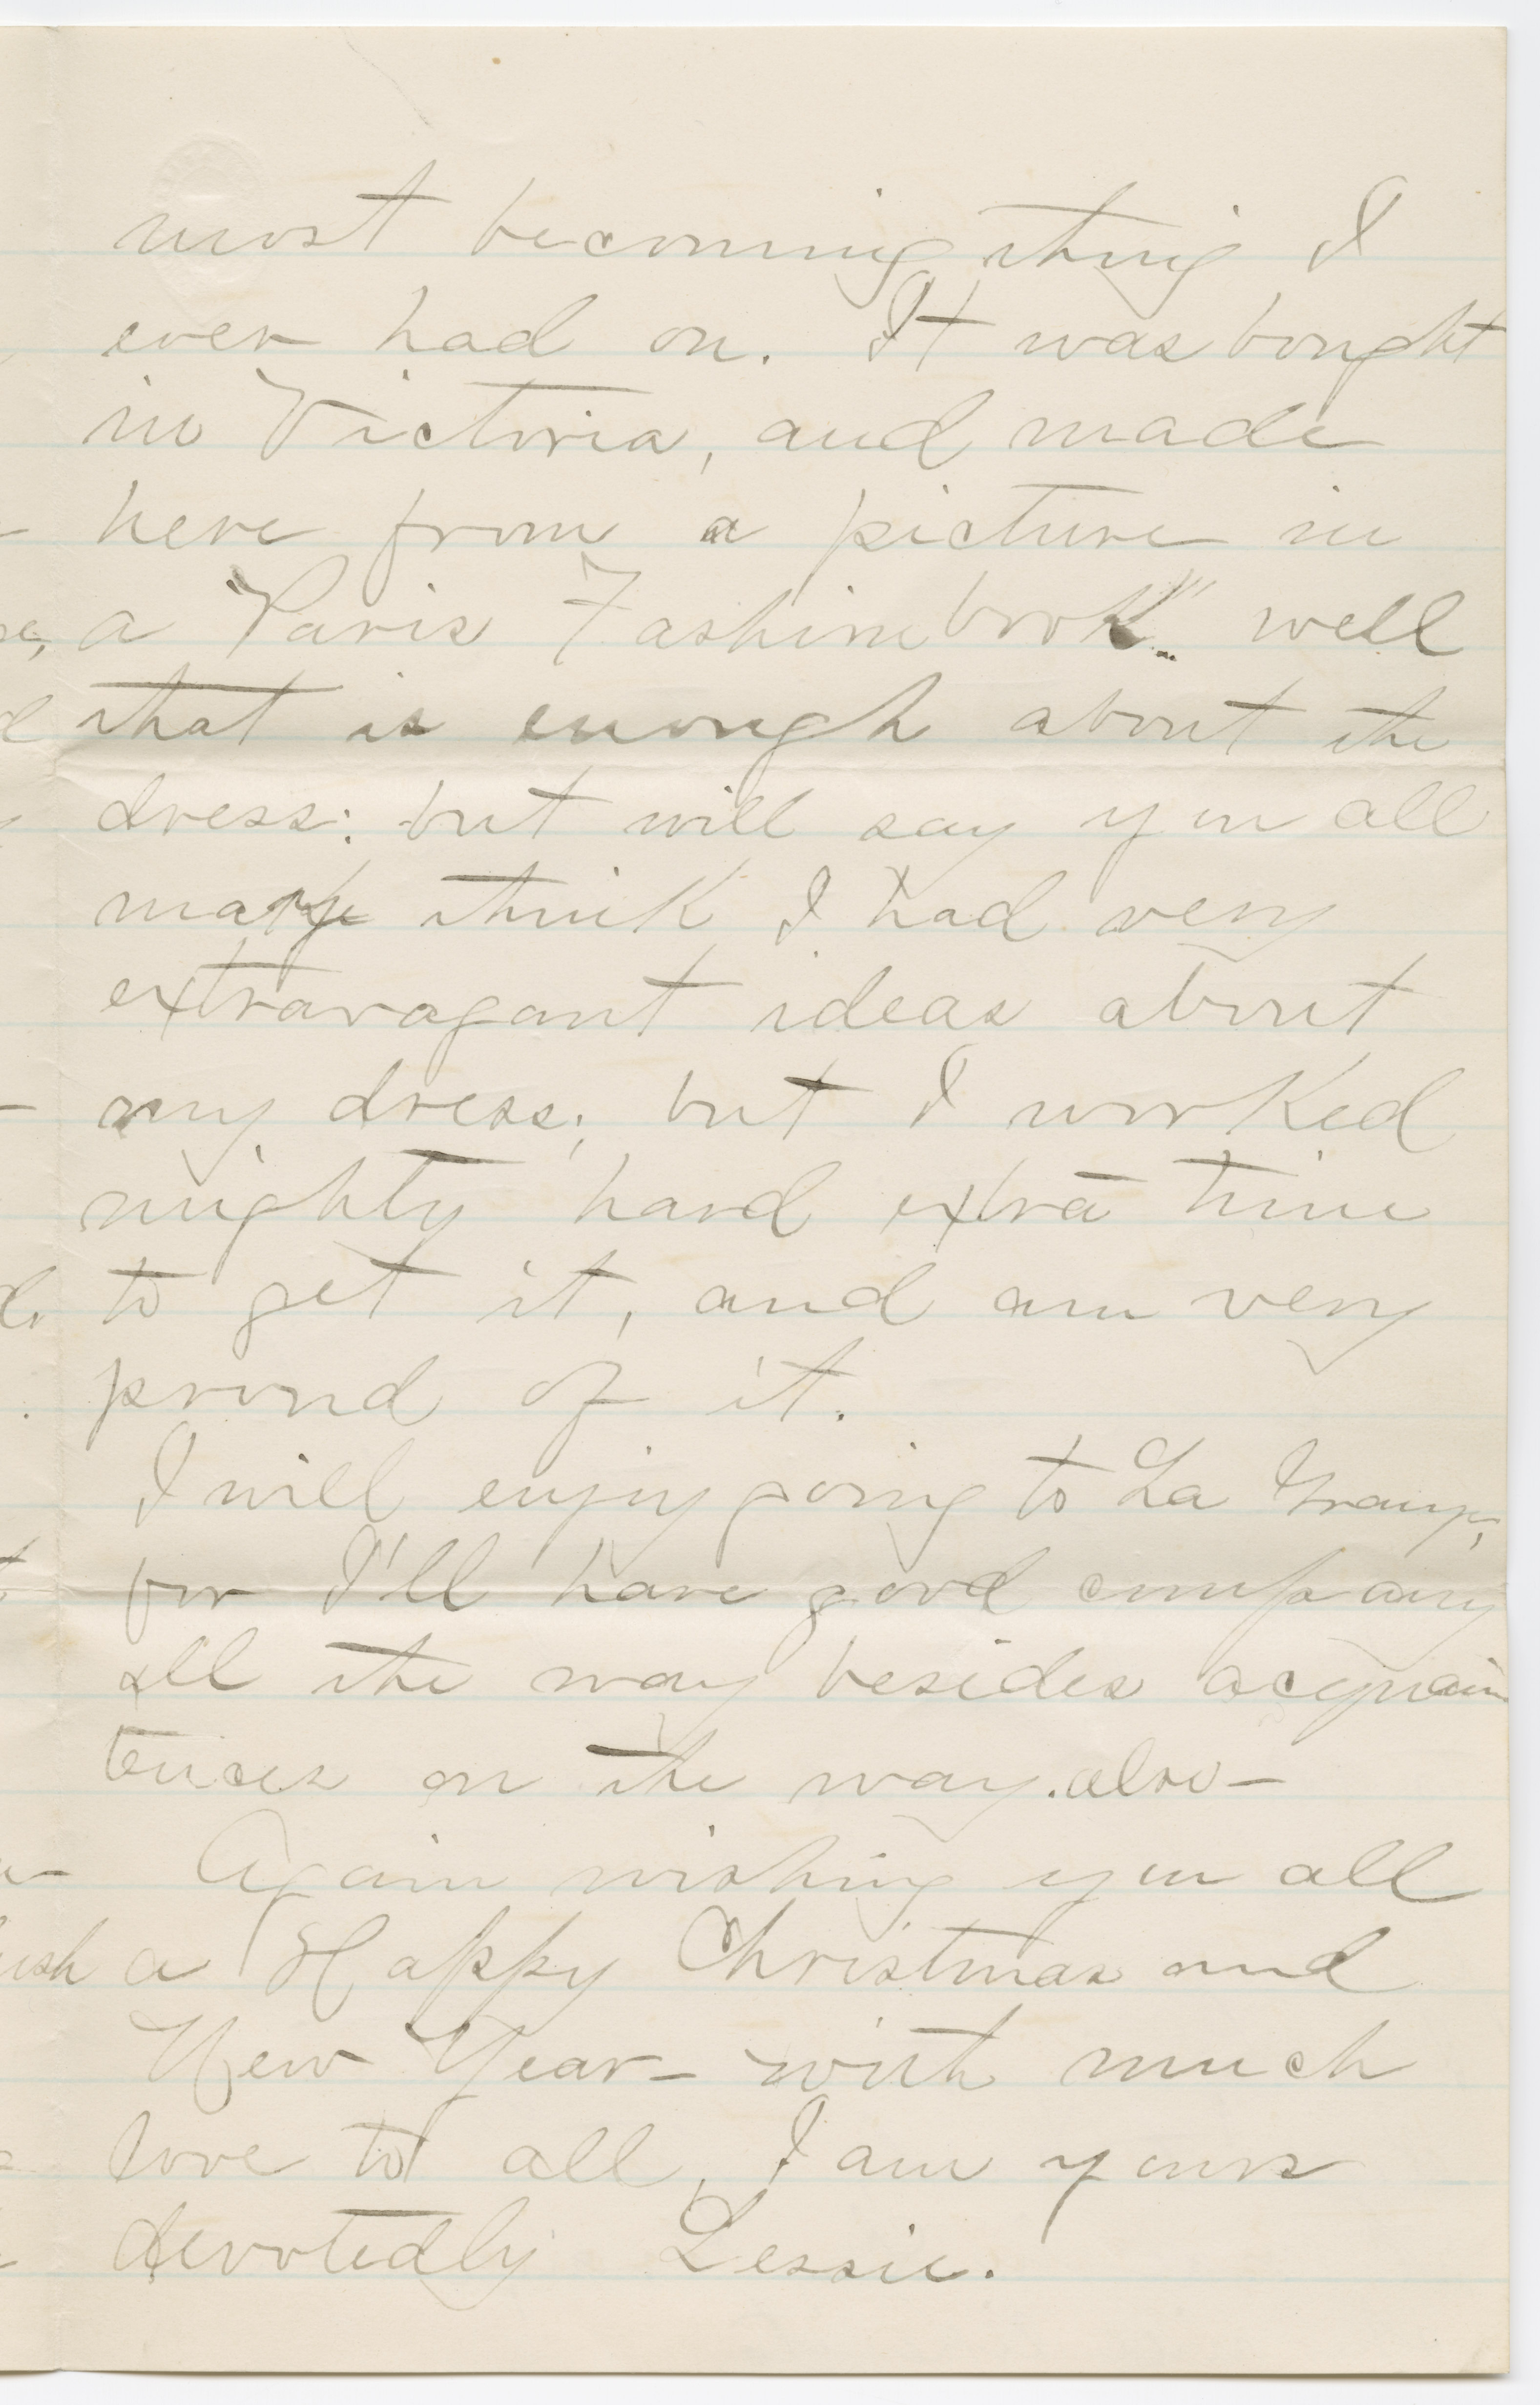 most becoming thing I
ever had on. It was bought
in Victoria, and made
here from a picture in
a Paris Fashion book". well
that is enough about the
dress: but will say you all
may think I had very
extravagant ideas about
my dress; but I worked
mighty hard extra time
to get it, and am very
proud of it.
I will enjoy going to La Grange,
for I'll have good company
all the way besides acquain
tences on the way. also—
Again wishing you all
a Happy Christmas and
New Year— with much
love to all, I am yours
devotedly Lessie.